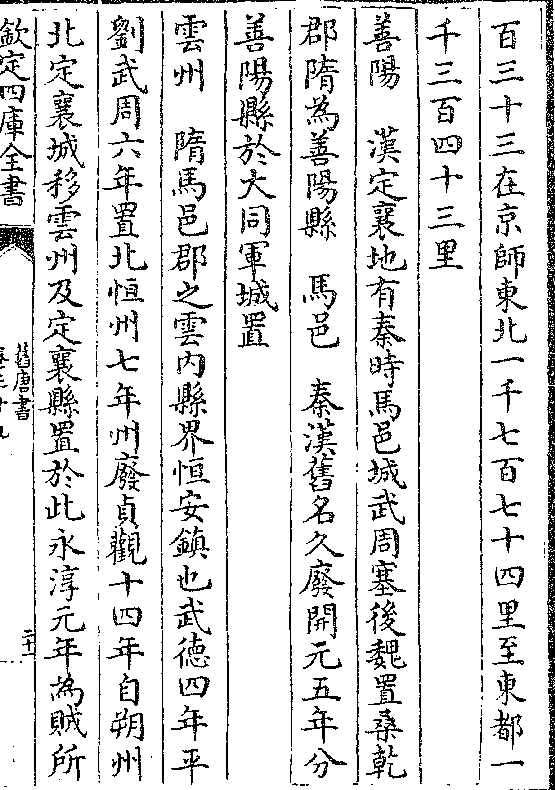 百三十三在京師東北一千七百七十四里至東都一
千三百四十三里
善陽　漢定襄地有秦時馬邑城武周塞後魏置桑乾
郡隋為善陽縣　馬邑　秦漢舊名久廢開元五年分
善陽縣於大同軍城置
雲州　隋馬邑郡之雲内縣界恒安鎮也武德四年平
劉武周六年置北恒州七年州廢貞觀十四年自朔州
北定襄城移雲州及定襄縣置於此永淳元年為賊所
欽定四庫全書
舊唐書